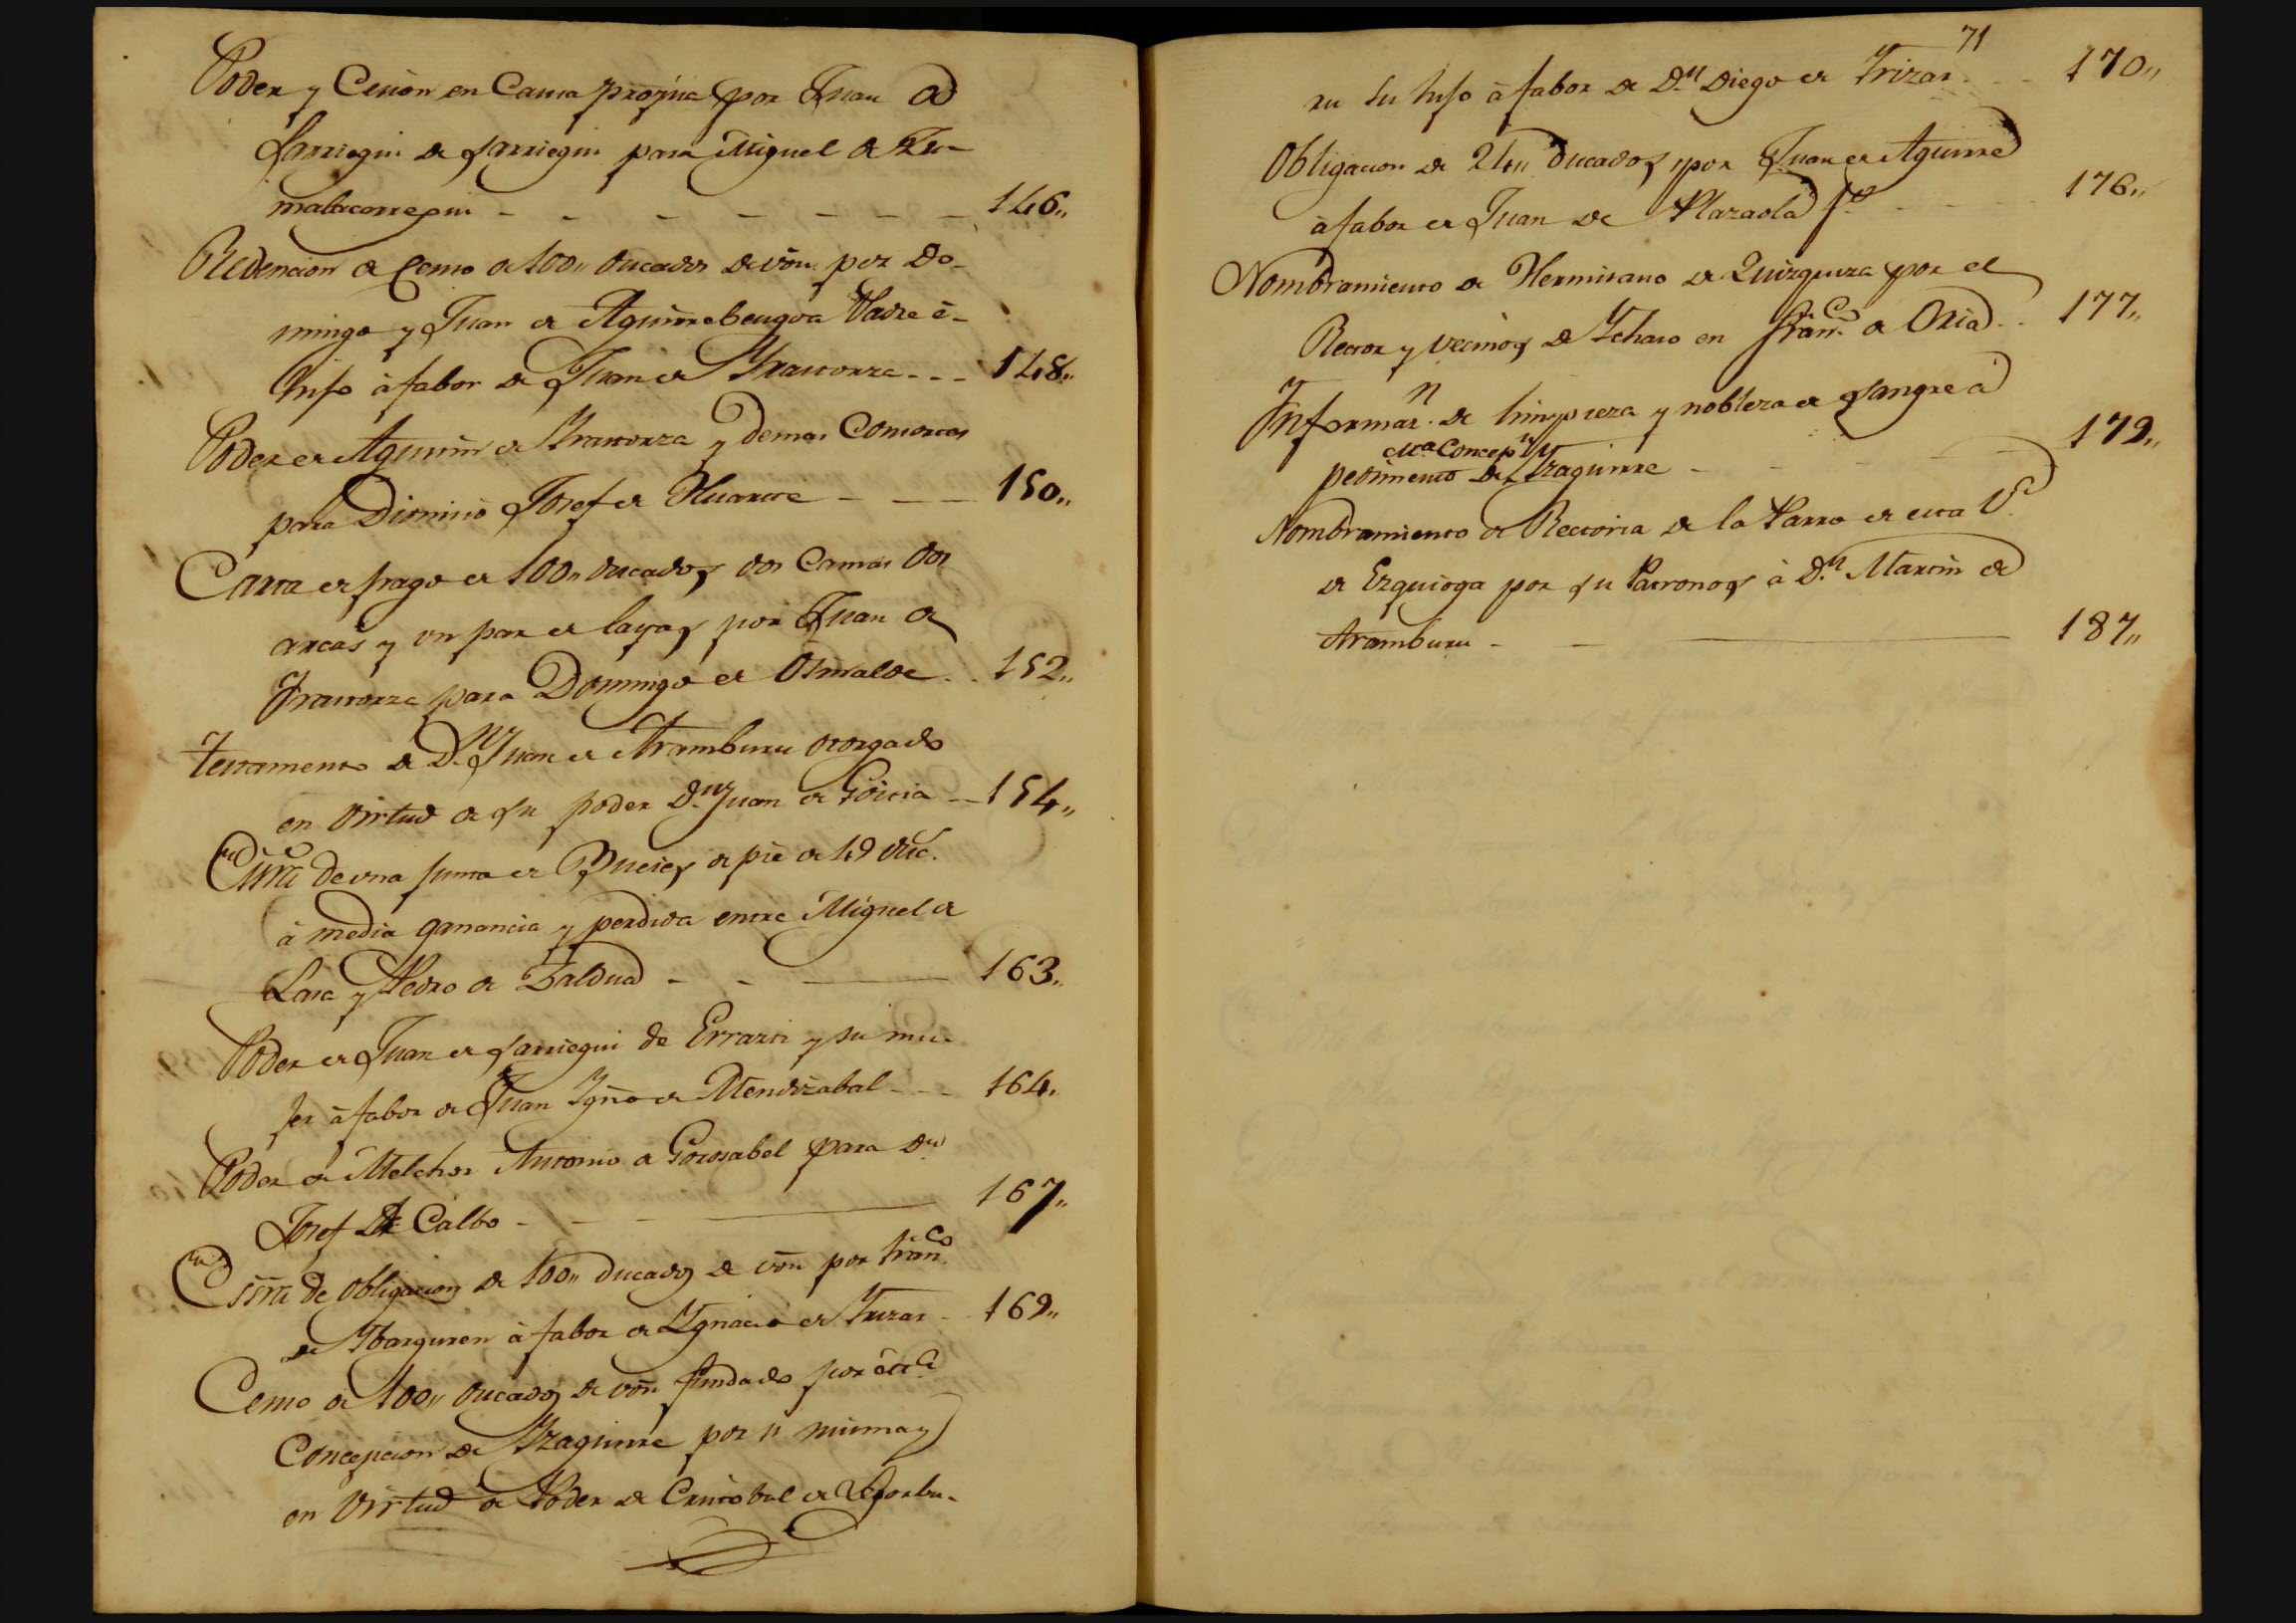 Poder y Cesion en Causa propia por Juan de
Sarriegui de Sarriegui para Miguel de Zu-
malacarregui - - - - - - - 146,,
Redencion de Censo de 100,, ducados de von por Do-
mingo y Juan de Aguirrebengoa Padre è
hijo à fabor de Juan de Yraeta - - - 148,,
Poder de Agustin de y demas Consortes
para Dionisio Josef de Huarte - - - 150,,
Carta de pago de 100,, ducados dos Camas dos
arcas y vn par de layas por Juan de
para Domingo de Osinalde - - 152,,
Testamento de Dn Juan de Aramburu otorgado
en virtud de su poder Dn Juan de Goitia - 154,,
Escritra de vna junta de Bueies de pie de 49 duc.
à media ganancia y perdida entre Miguel de
Lasa y Pedro de Zaldua - - - 163,,
Poder de Juan de Sarriegui de Errazti y su mu-
jer à fabor de Juan Ygno de Mendizabal - - - 164,,
Poder de Melchor Antonio de Gorosabel para Dn
Josef de Calbo - - - 167,,
Essra de obligacion de 100,, ducados de von por Franco
de Ybarguren à fabor de Ygnacio de Yrizar - - 169,,
Censo de 100,, ducados de von fundado por Ma
Concepcion de Yzaguirre por si misma y
en virtud de Poder de Cristobal de Legorbu-
71
ru su hijo à fabor de Dn Diego de Yrizar - - 170,,
Obligacion de 24,, ducados por Juan de Aguirre
à fabor de Juan de Plazaola - - - 176,,
Nombramiento de Hermitano de Quizquiza por el
Rector y vecinos de Ychaso en Franco de Oria - - 177,,
Informan de limpieza y nobleza de sangre à
Ma Concepn
pedimento de Yzaguirre - - - - 179,,
Nombramiento de Rectoria de la Parra de esta Va
de Ezquioga por su Patronos à Dn Martin de
Aramburu - - - 187,,